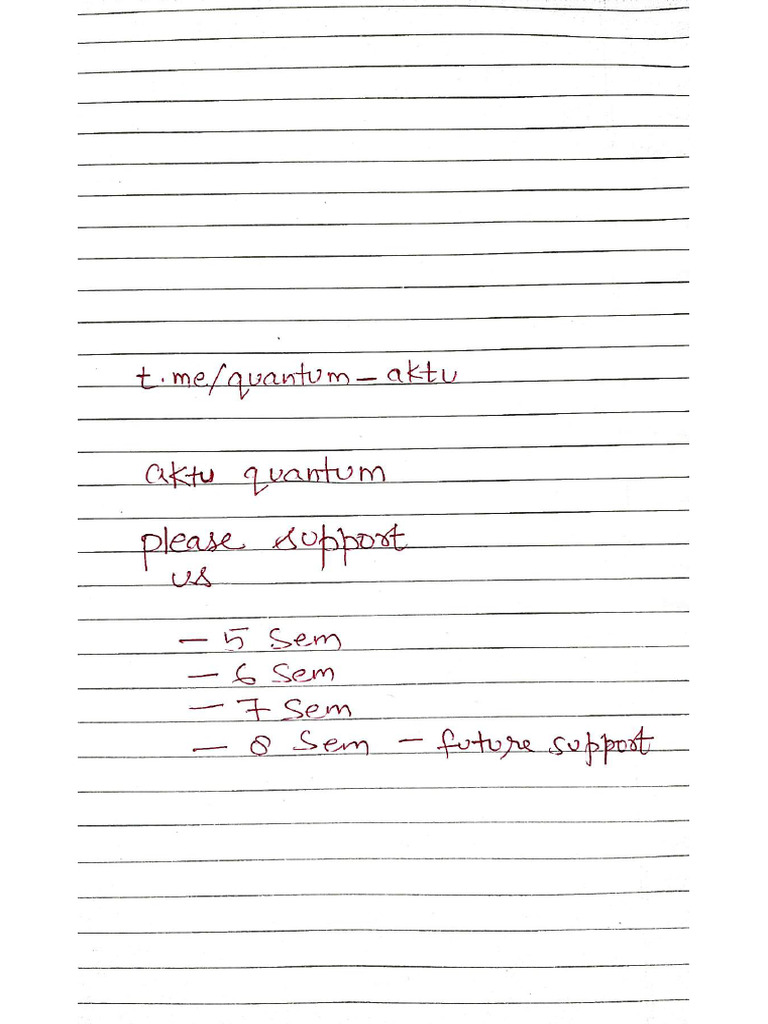 t.me/quantum_aktu
aktu quantum
please support
us
- 5 Sem
- 6 Sem
- 7 Sem
- 8 Sem - future support